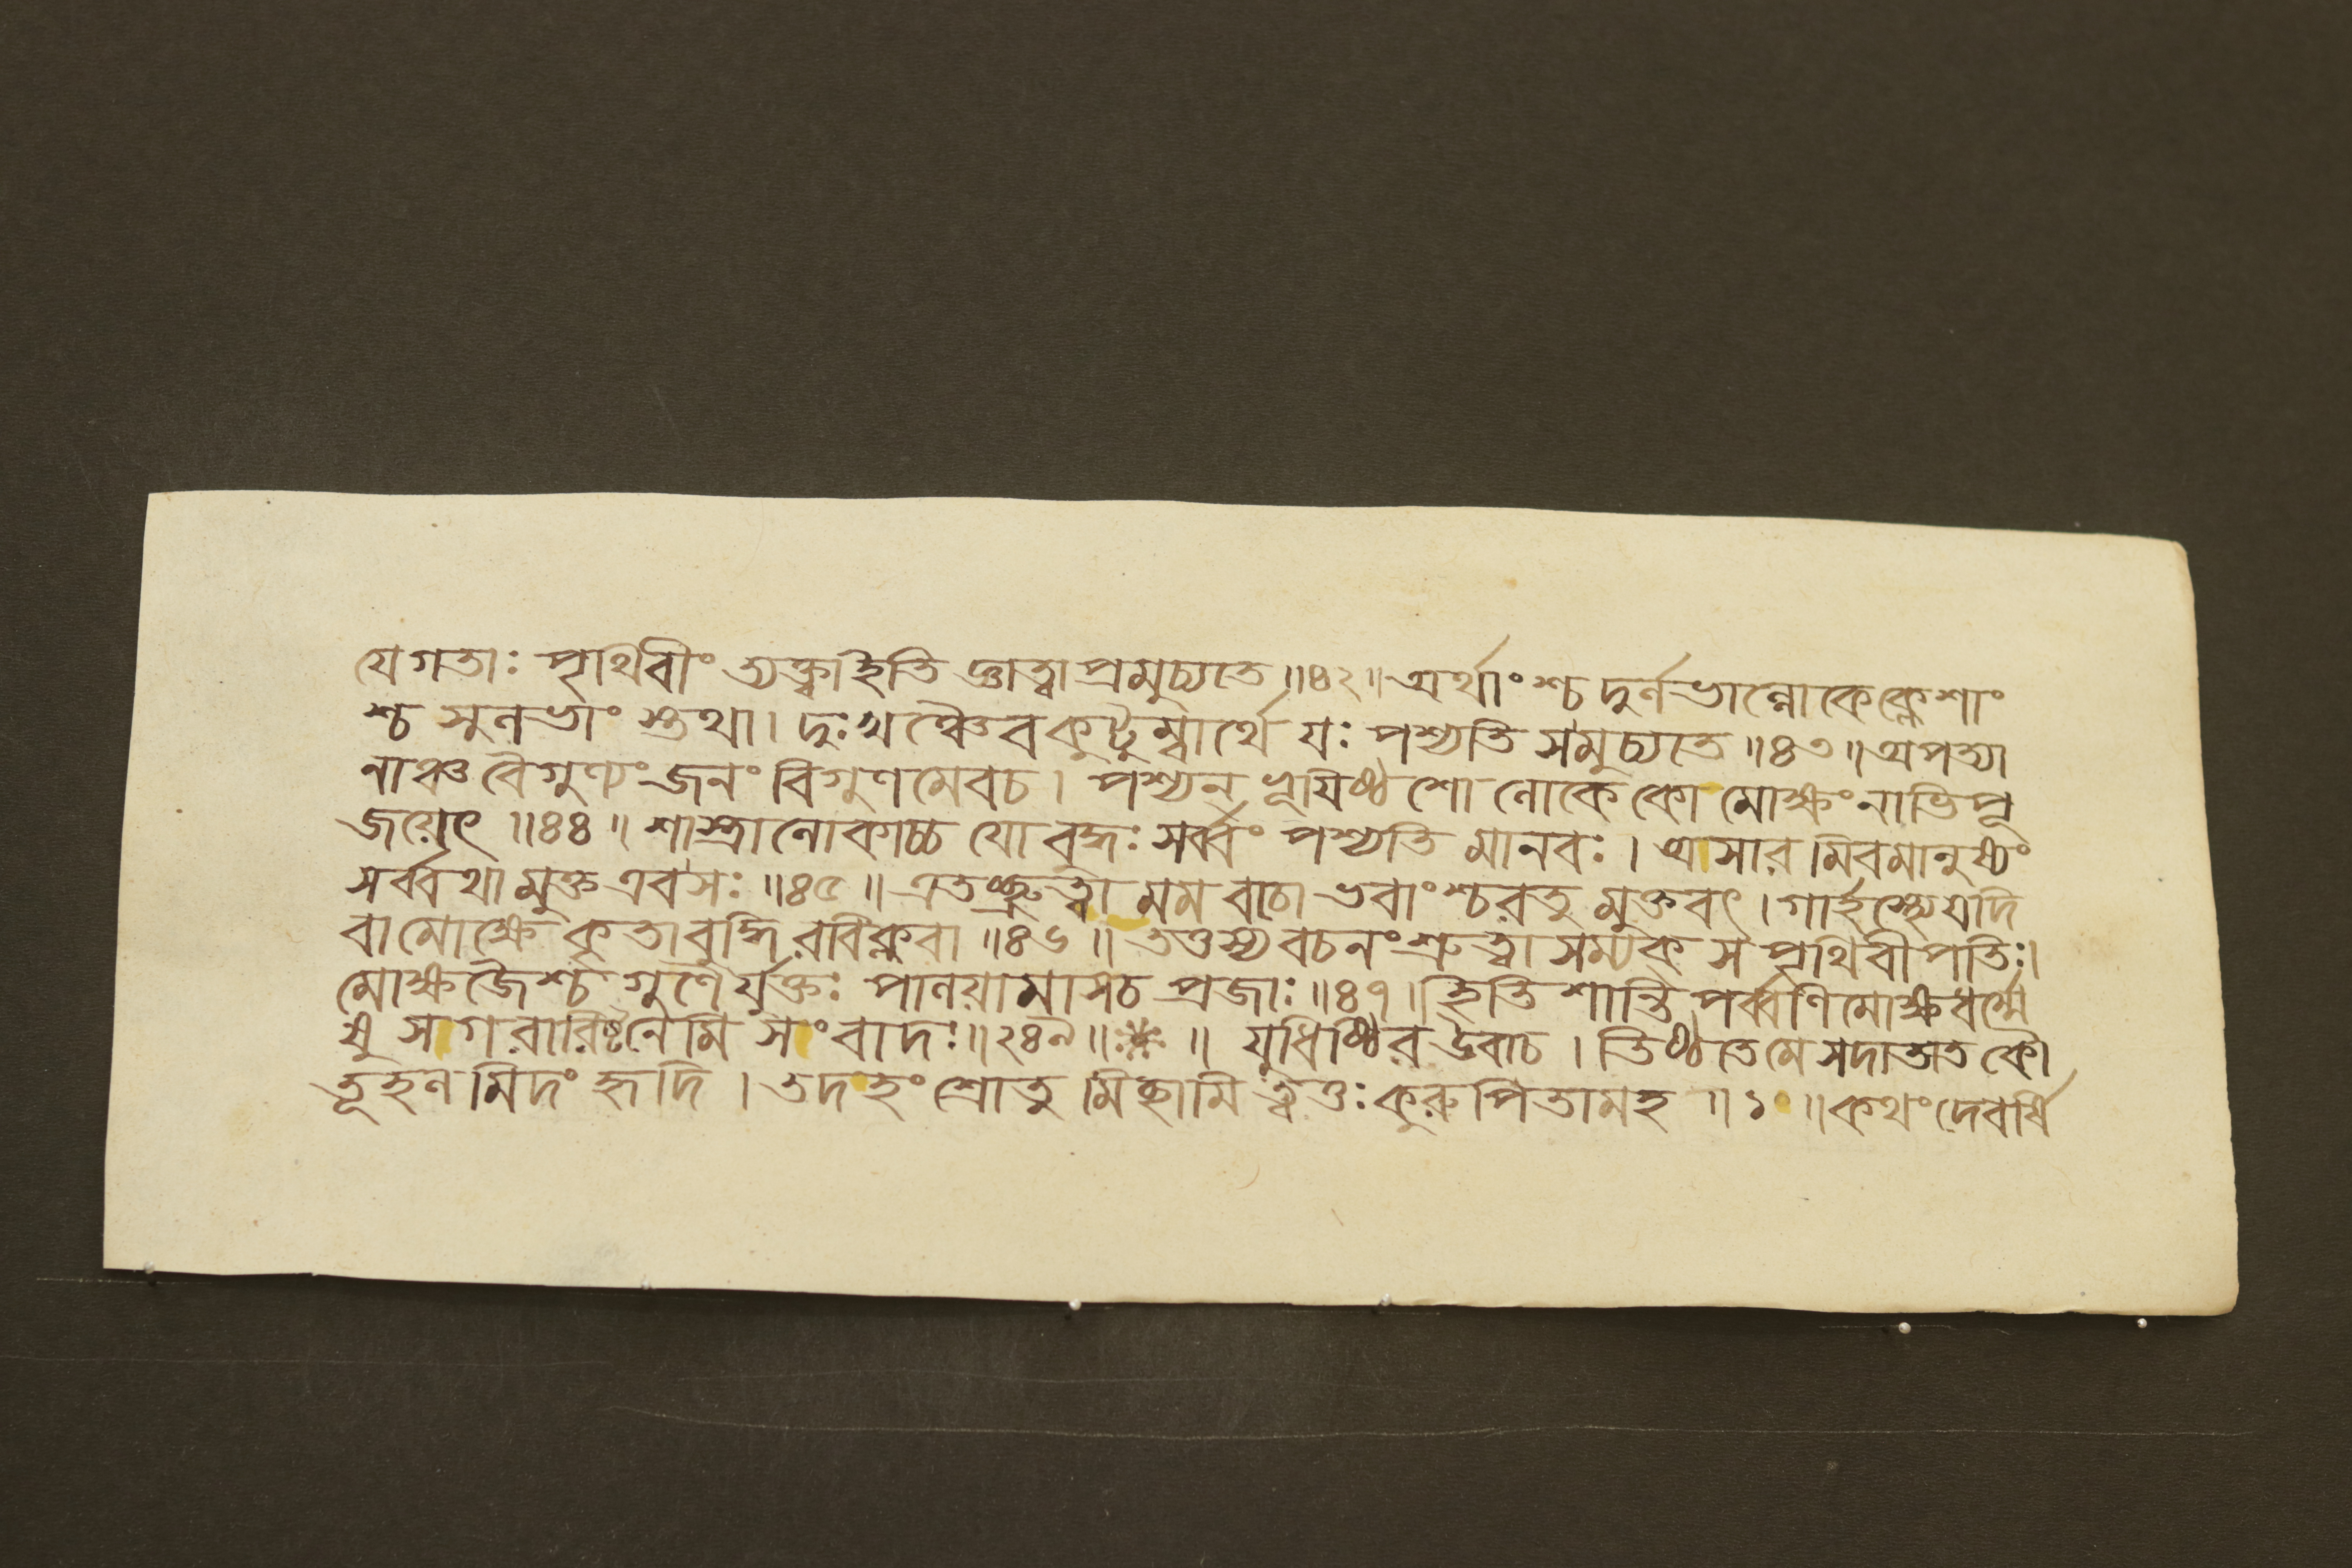 যেগতাঃ পৃথিবীং ত্যক্ত্বাইতি জ্ঞাত্বাপ্রমুচ্যতে॥৪২॥অর্থাংশ্চদুর্লভাল্লোকেক্লেশাং
শ্চ সুলভাংস্তথা। দুঃখঞ্চৈবকুটুম্বার্থে যঃ পশ্যতি সমুচ্যতে॥৪৩॥অপত্যা
নাঞ্চ বৈগুণ্যং জনং বিগুণমেবচ। পশ্যন্ ভূয়িষ্ঠশো লোকে কো মোক্ষং নাভিপূ
জয়েৎ॥৪৪॥ শাস্ত্রাল্লোকাচ্চ যো বুদ্ধঃ সর্ব্বং পশ্যতি মানবঃ। অসারমিবমানুষ্যং
সর্ব্বথামুক্ত এব সঃ॥৪৫॥ এতচ্ছ্রুত্বা মম বাচো ভবাংশ্চরতু মুক্তবৎ। গার্হস্থ্যেযদি
বা মোক্ষে কৃতাবুদ্ধিরবিক্লবা॥৪৬॥ তত্তস্য বচনংশ্রুত্বা সম্যক্ স পৃথিবীপতিঃ।
মোক্ষজৈশ্চ গুণৈর্যুক্তঃ পালয়ামাসচ প্রজাঃ॥৪৭॥ইতি শান্তিপর্ব্বণিমোক্ষধর্ম্মে
ষু সাগরারিষ্টনেমি সংবাদঃ॥২৪৯॥※॥ যুধিষ্ঠির উবাচ। তিষ্ঠতে মে সদা তাত কৌ
তূহলমিদং হৃদি। তদহং শ্রোতুমিচ্ছামি ত্বত্তঃ কুরুপিতামহ॥১॥কথং দেবর্ষি